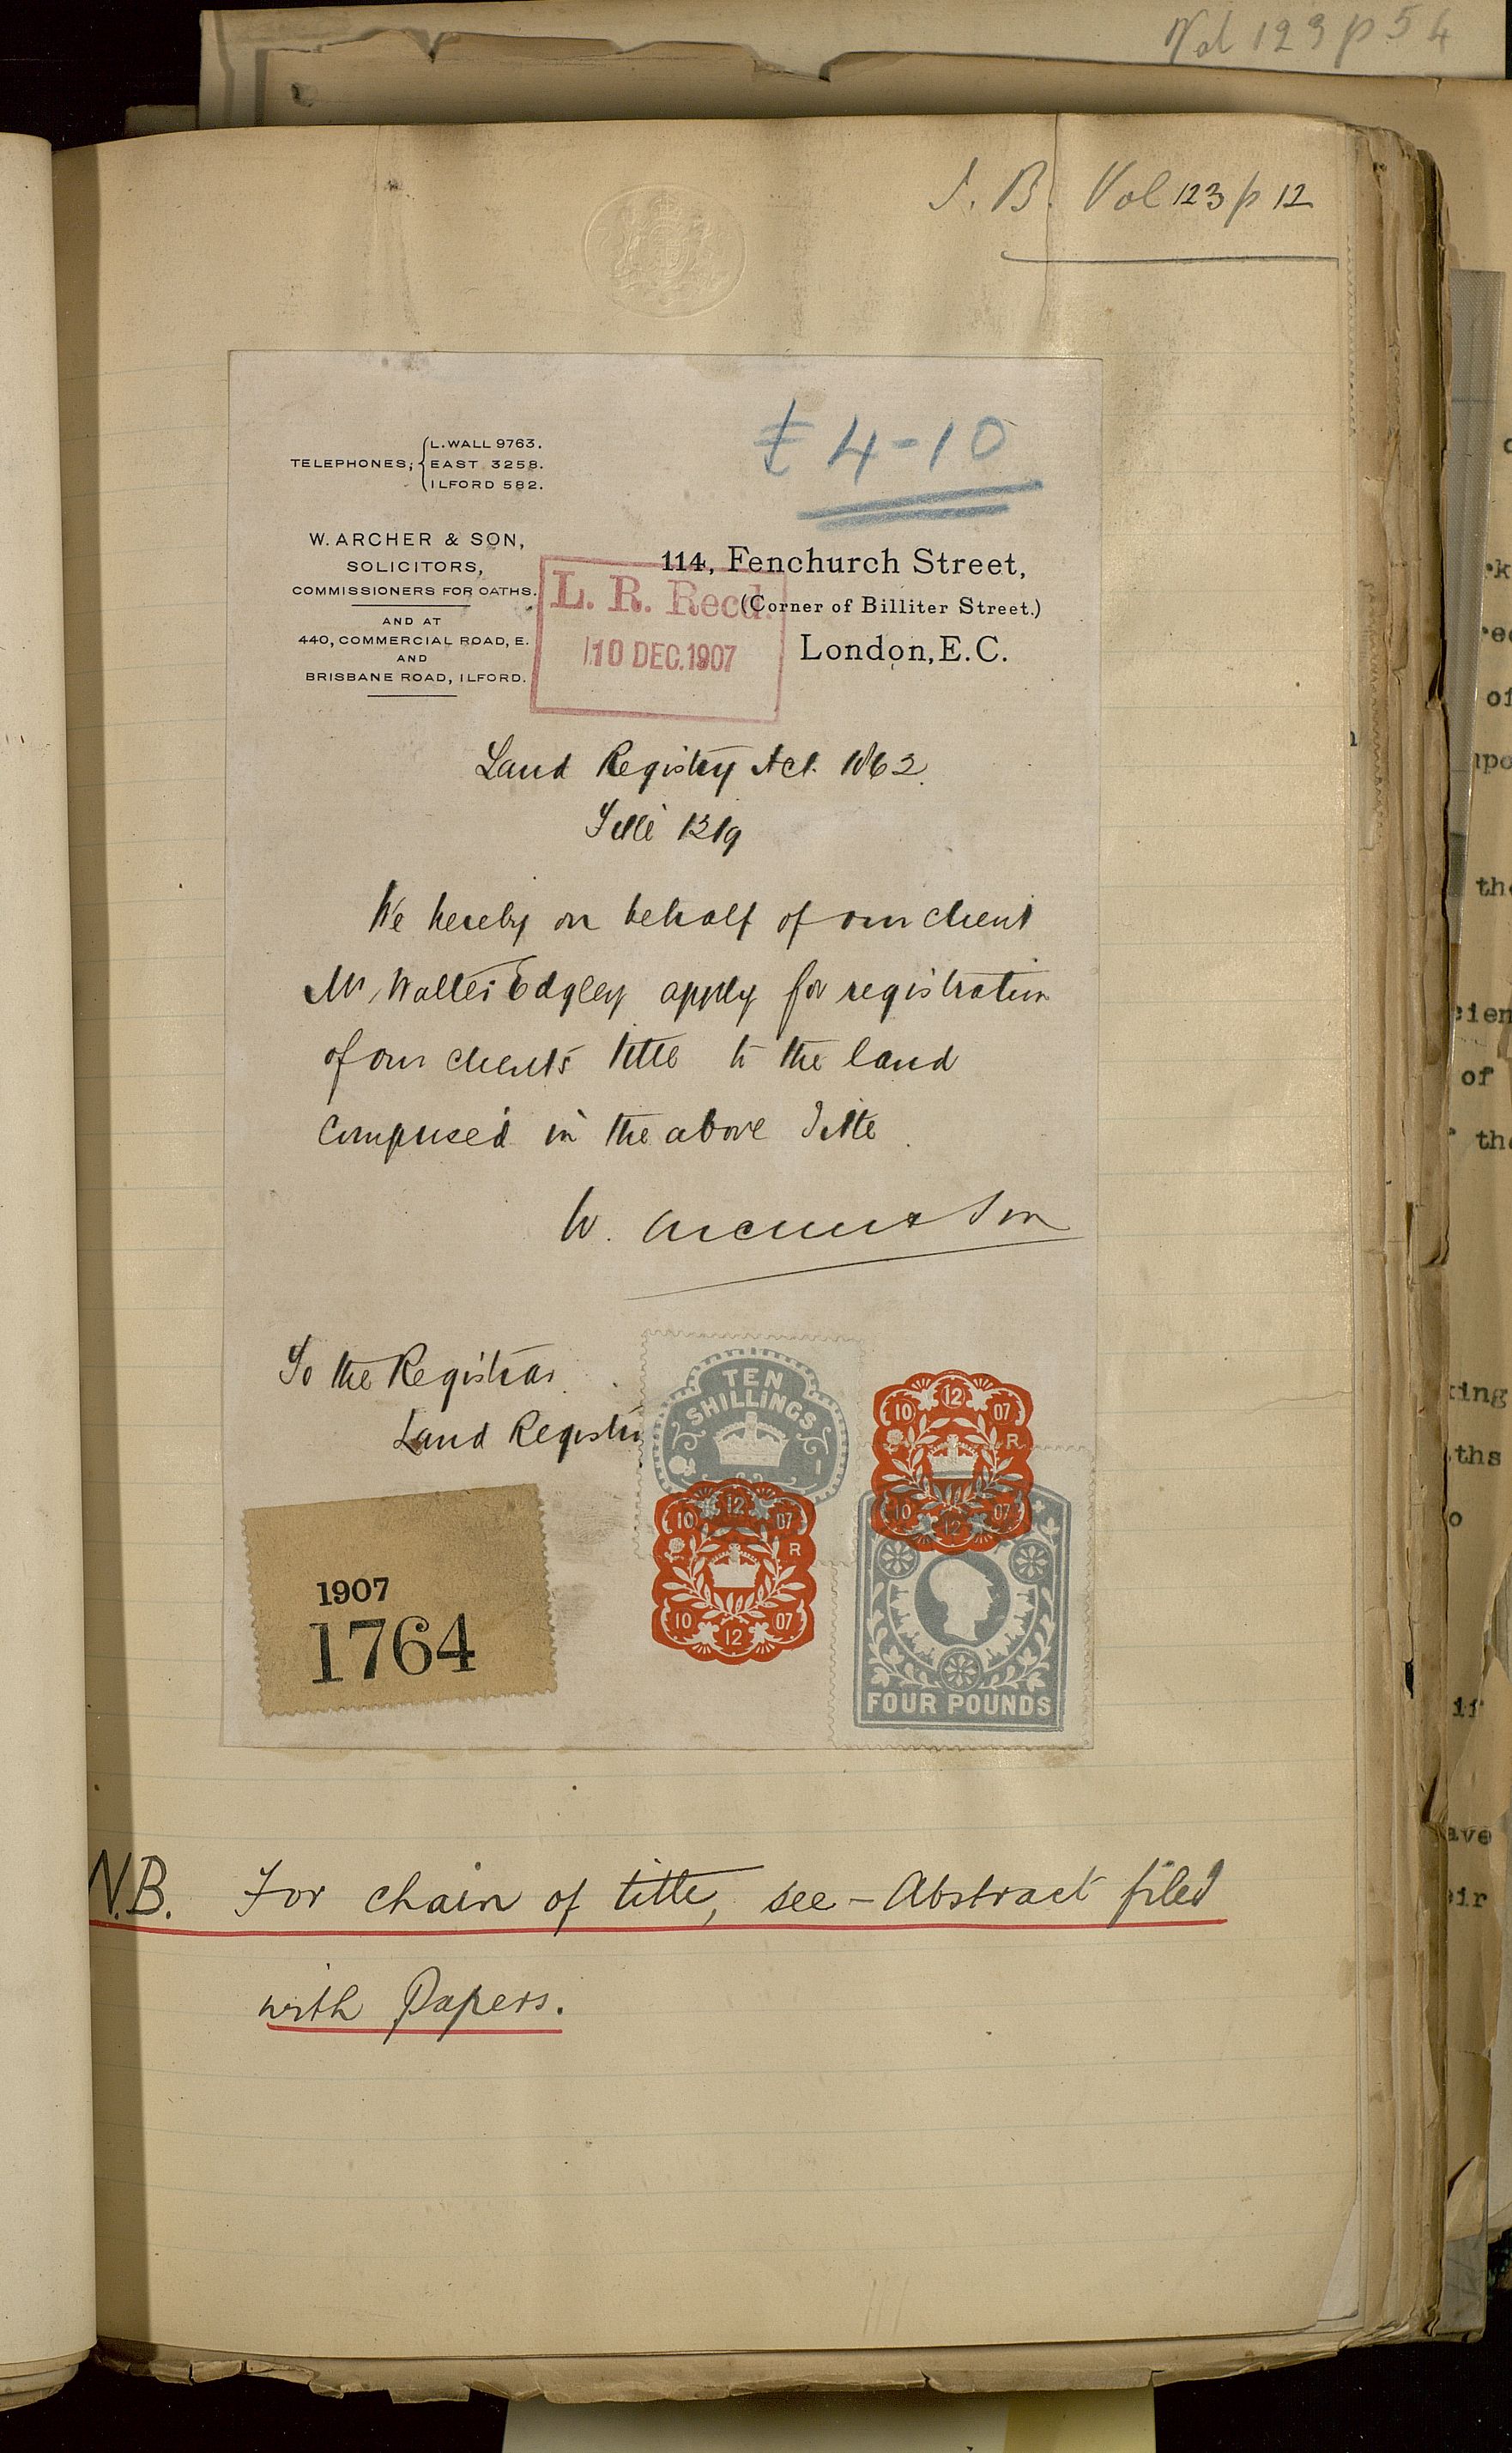 Vol 123 p 54
I. B. Vol 123 p 12
£4-10
TELEPHONES; L. WALL 9763.
EAST 3258.
ILFORD 582.
W. ARCHER & SON,
SOLICITORS,
COMMISSIONERS FOR OATHS.
AND AT
440, COMMERCIAL ROAD, E.
AND
BRISBANE ROAD, ILFORD.
114, Fenchurch Street,
(Corner of Billiter Street.)
London, E.C.
L. R. Recd.
10 DEC. 1907
Land Registry Act. 1862.
Title 1319
We hereby on behalf of our client
Mr. Walter Edgley apply for registration
of our client's title to the land
comprised in the above Title.
W. Archer & Son
To the Registrar.
Land Registry
1907
1764
TEN
SHILLINGS
10 12 07
R
10 12 07
10 12 07
R
10 12 07
FOUR POUNDS
N.B. For chain of title, see - Abstract filed
with Papers.